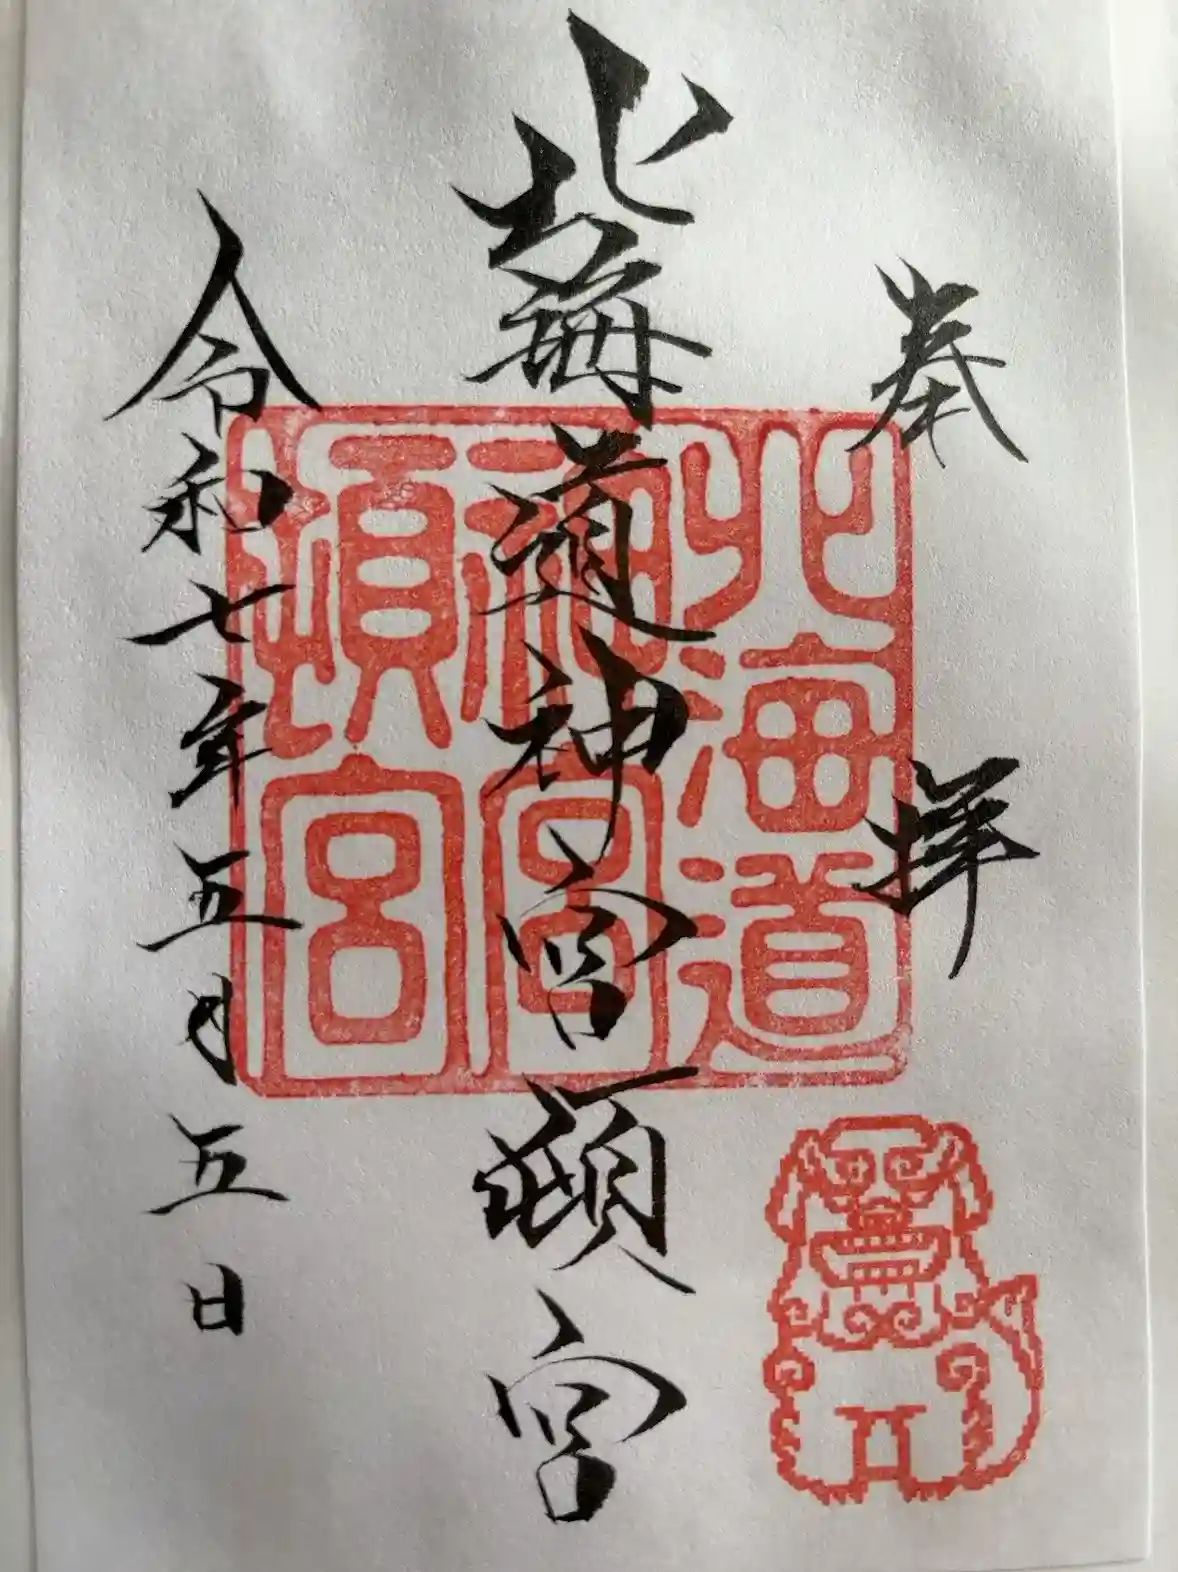 奉拝
北海道神宮頓宮
令和七年五月五日
北海道
神宮
頓宮